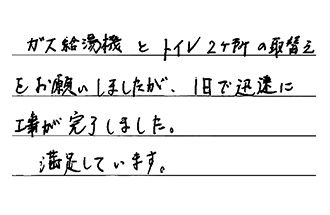 ガス給湯機とトイレ2ケ所の取替え
をお願いしましたが、1日で迅速に
工事が完了しました。
満足しています。